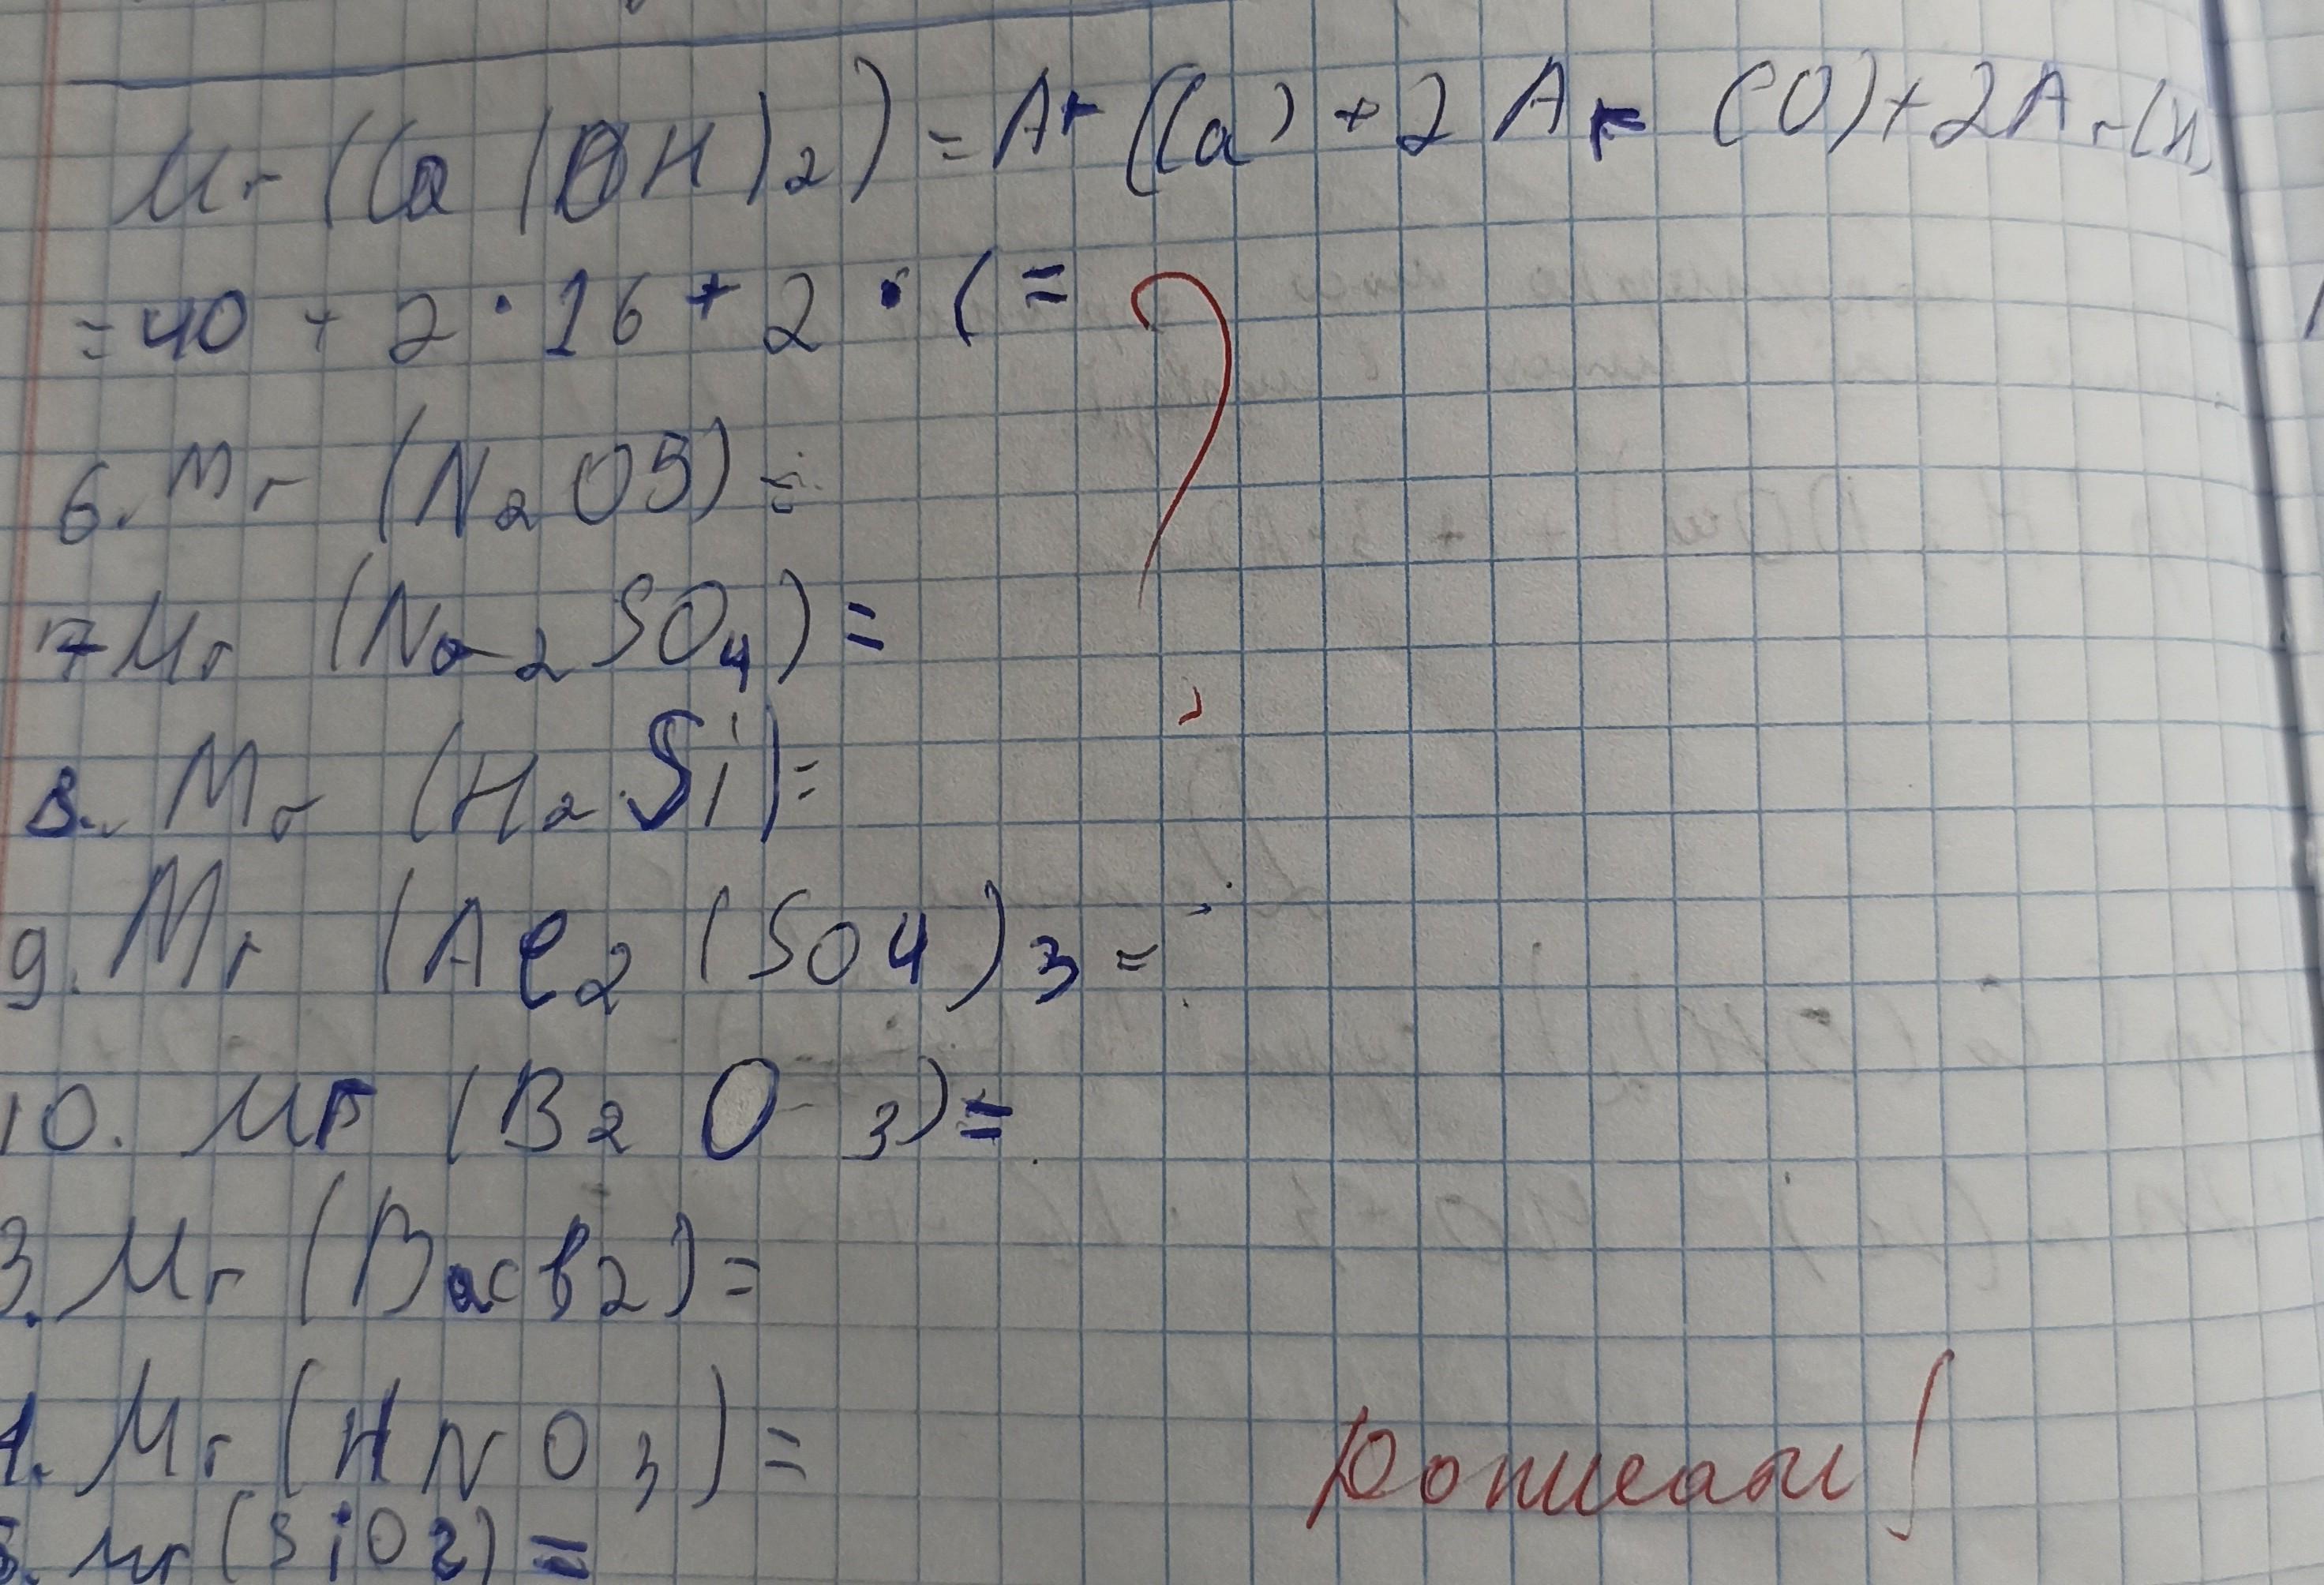 Mr (Ca(OH)2) = Ar (Ca) + 2 Ar (O) + 2Ar(H)
= 40 + 2 · 16 + 2 · ( =
6. Mr (N2O5) =
7 Mr (Na2SO4) =
8. Mr (H2Si) =
9. Mr (Al2(SO4)3 =
10. Mr (B2O3) =
3. Mr (
Mr (HNO3) =
Mr (SiO2) =
?
Дописать!